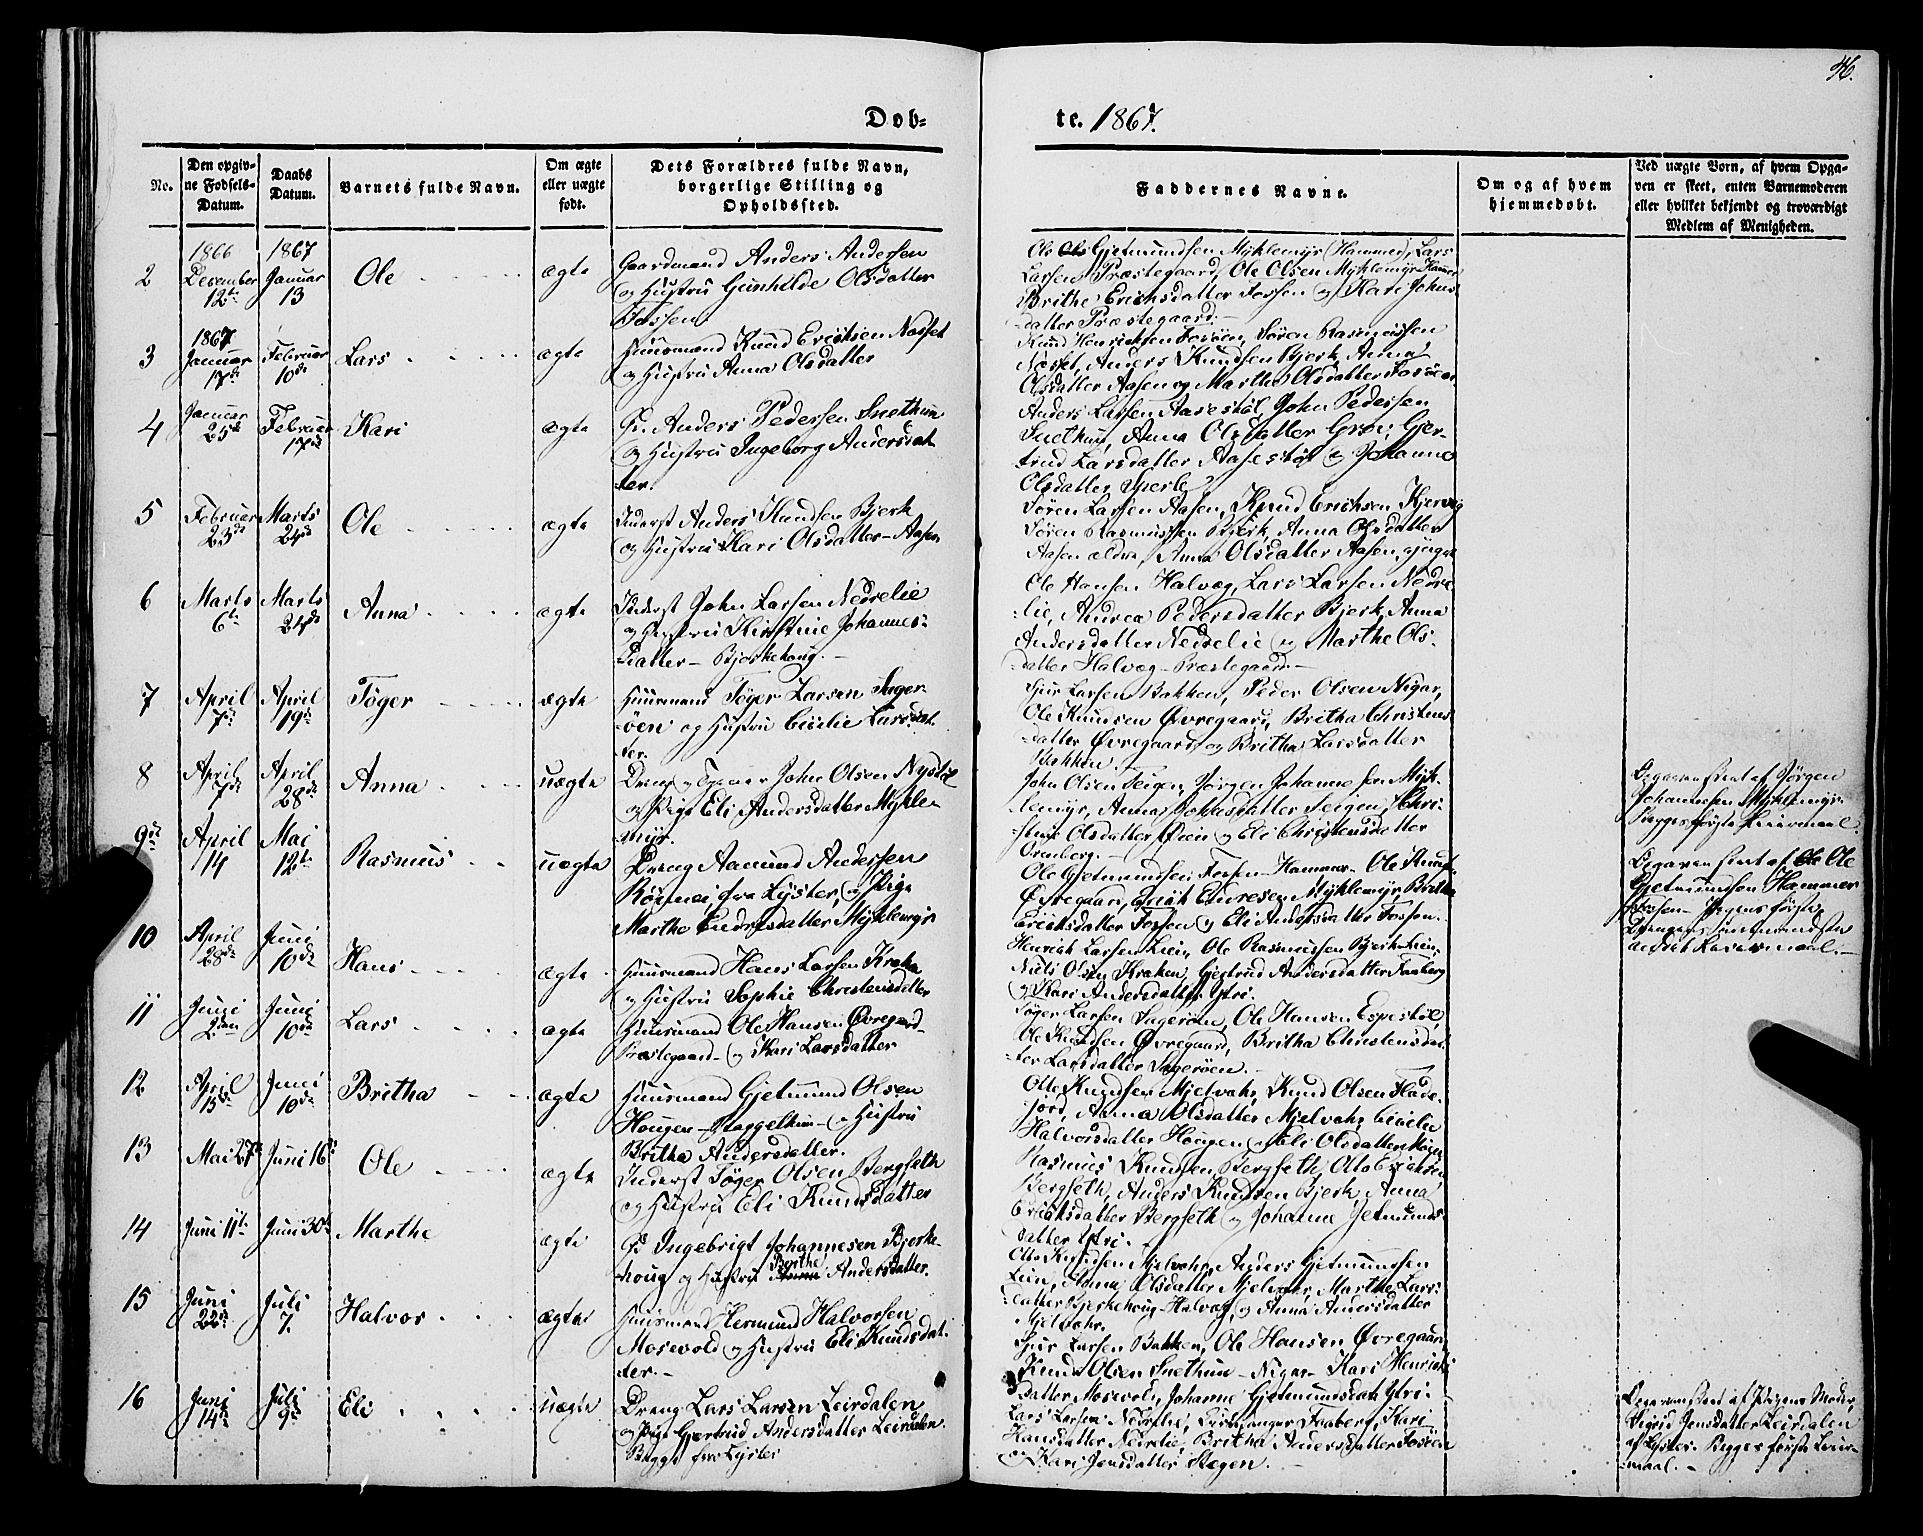 46.
Dob-
te. 1867.
No.
Den opgiv-
ne Fodsels-
Datum.
Daabs
Datum.
Barnets fulde Navn.
Om ægte
eller uægte
født.
Dets Forældres fulde Navn,
borgerlige Stilling og
Opholdssted.
Faddernes Navne.
Om og af hvem
hjemmedøbt.
Ved uægte Born, af hvem Opga-
ven er skeet, enten Barnemoderen
eller hvilket bekjendt og troværdigt
Medlem af Menigheden.
2
1866
December
12te
1867
Januar
13
Ole
ægte
Gaardmand Anders Andersen
og Hustru Gunhilde Olsdatter
Fossen
Ole Gjetmundsen Myklemyr (Hammer), Lars
Larsen Præstegaard, Ole Olsen Myklemyr Hammer
Brithe Erichsdatter Fossen og Kari Johns
datter Præstegaard.
3
1867
Januar
17de
Februar
10de
Lars
ægte
Huusmand Knud Erichsen Næsset
og Hustru Anna Olsdatter
Knud Henrichsen Fosøen, Søren Rasmussen
Næsset, Anders Knudsen Bjerk, Anna
Olsdatter Aasen og Marthe Olsdatter Fosøen
4
Januar
25de
Februar
17de
Kari
ægte
Anders Pedersen Snethun
og Hustru Ingeborg Andersdat
ter.
Anders Larsen Aasestøl, John Pedersen
Snethun, Anna Olsdatter Grøn, Gjer-
trud Larsdatter Aasestøl og Johanne
Olsdatter Sperle
5
Februar
23de
Marts
24de
Ole
ægte
Inderst Anders Knudsen Bjerk
og Hustru Kari Olsdatter - Aasen
Søren Larsen Aasen, Knud Erichsen Kjervig
Søren Rasmussen Bjerk, Anna Olsdatter
Aasen ældre, Anna Olsdatter Aasen, yngre
6
Marts
6te
Marts
24de
Anna
ægte
Inderst John Larsen Nedrelie
og Hustru Kirstine Johannes-
datter - Bjerkehoug. -
Ole Hansen Halvæg, Lars Larsen Nedre
lie, Andrea Pedersdatter Bjerk, Anna
Andersdatter Nedrelie og Marthe Ols-
datter Halvæg - Præstegaard. -
7
April
7de
April
19de
Tøger
ægte
Huusmand Tøger Larsen Sager-
øen og Hustru Cicilie Larsdat-
ter.
Sjur Larsen Bakken, Peder Olsen Nigar,
Ole Knudsen Øvregaard, Britha Christens
datter Øvregaard og Britha Larsdatter
Bakken.
8
April
7de
April
28de
Anna
uægte
John Olsen Nystøl
og Pige Eli Andersdatter Mykle-
myr.
John Olsen Teigen, Jørgen Johannesen Myk-
lemyr, Anna Johnsdatter Teigen, Chri-
stine Olsdatter og Eli Christensdatter
Ormberg.
Opgaven skeet af Jørgen
Johannesen Myklemyr.
Begges første Leiermaal.
9de
April
14
Mai
12te
Rasmus
uægte
Dreng Aamund Andersen
Rørnei, fra Lyster, og Pige
Marthe Endresdatter Myklemyr
Ole Gjetmundsen Fossen - Hammer - Ole Knuds
Øvregaard, Erich Endresen Myklemyr, Britha
Erichsdatter Fossen og Eli Andersdatter Fossen.
Opgaven skeet af Ole
Gjetmundsen Hammer
Fossen - Pigens første,
Drengens
andet Leiermaal. -
10
April
28de
Juni
10de
Hans
ægte
Huusmand Hans Larsen Kraka
og Hustru Sophie Christensdatter
Henrich Larsen Lein, Ole Rasmussen Bjerk-Lein,
Niels Olsen Kraken, Gjertrud Andersdatter Faaberg
og Kari Andersdatter Ytri.
11
Juni
2den
Juni
10de
Lars
ægte
Huusmand Ole Hansen Øvregaard-
Præstegaard- og Kari Larsdatter
Tøger Larsen Sagerøen, Ole Hansen Espestøl,
Ole Knudsen Øvregaard, Britha Christensdat-
ter Larsdatter Sagerøen. -
12
April
15de
Juni
10de
Britha
ægte
Huusmand Gjetmund Olsen
Hougen og Hustru
Britha Andersdatter.
Otte Knudsen Mjelvahr, Knud Olsen Flade-
jord, Anna Olsdatter Mjelvahr, Cicilie
Halvorsdatter Hougen og Eli Olsdatter
13
Mai 27de
Juni 16de
Ole
ægte
Inderst Tøger Olsen Bergseth
og Hustru Eli Knudsdatter
Rasmus Knudsen Bergseth, Otto Erichsen
Bergseth, Anders Knudsen Bjerk, Anna
Erichsdatter Bergseth og Johanne Jetmunds-
datter Ytri.
14
Juni 11te
Juni 30te
Marthe
ægte
Ingebrigt Johannesen Bjerke-
houg og Hustru Anna Brithe Andersdatter.
Otte Knudsen Mjelvahr, Anders Gjetmundsen
Lein, Anna Olsdatter Mjelvær, Marthe Lars-
datter Bjerkehoug-Halvæg, og Anna Andersdatter
Mjelvahr.
15
Juni
22de
Juli
7.
Halvor
ægte
Huusmand Hermund Halvorsen
Mosevold og Hustru Eli Knudsdat-
ter. -
Sjur Larsen Bakken, Ole Hansen Øvregaard,
Knud Olsen Snethun - Nigar - Kari Henrichs
datter Mosevold, Johanne Gjetmundsdat. Ytri.
16
Juni
14de
Juli
9de
Eli
uægte
Dreng Lars Larsen Leirdalen
og Pige Gjertrud Andersdatter Leirdalen.
Begge fra Lyster
Lars Larsen Nedrelie, Faaberg, Kari
Hansdatter Nedrelie, Britha Andersdatter Fosøen
og Kari Jensdatter Stegen. -
Opgaven skeet af Pigens Moder,
Sigrid Jensdatter Leirdalen
af Lyster. Begges første Leier-
maal. -